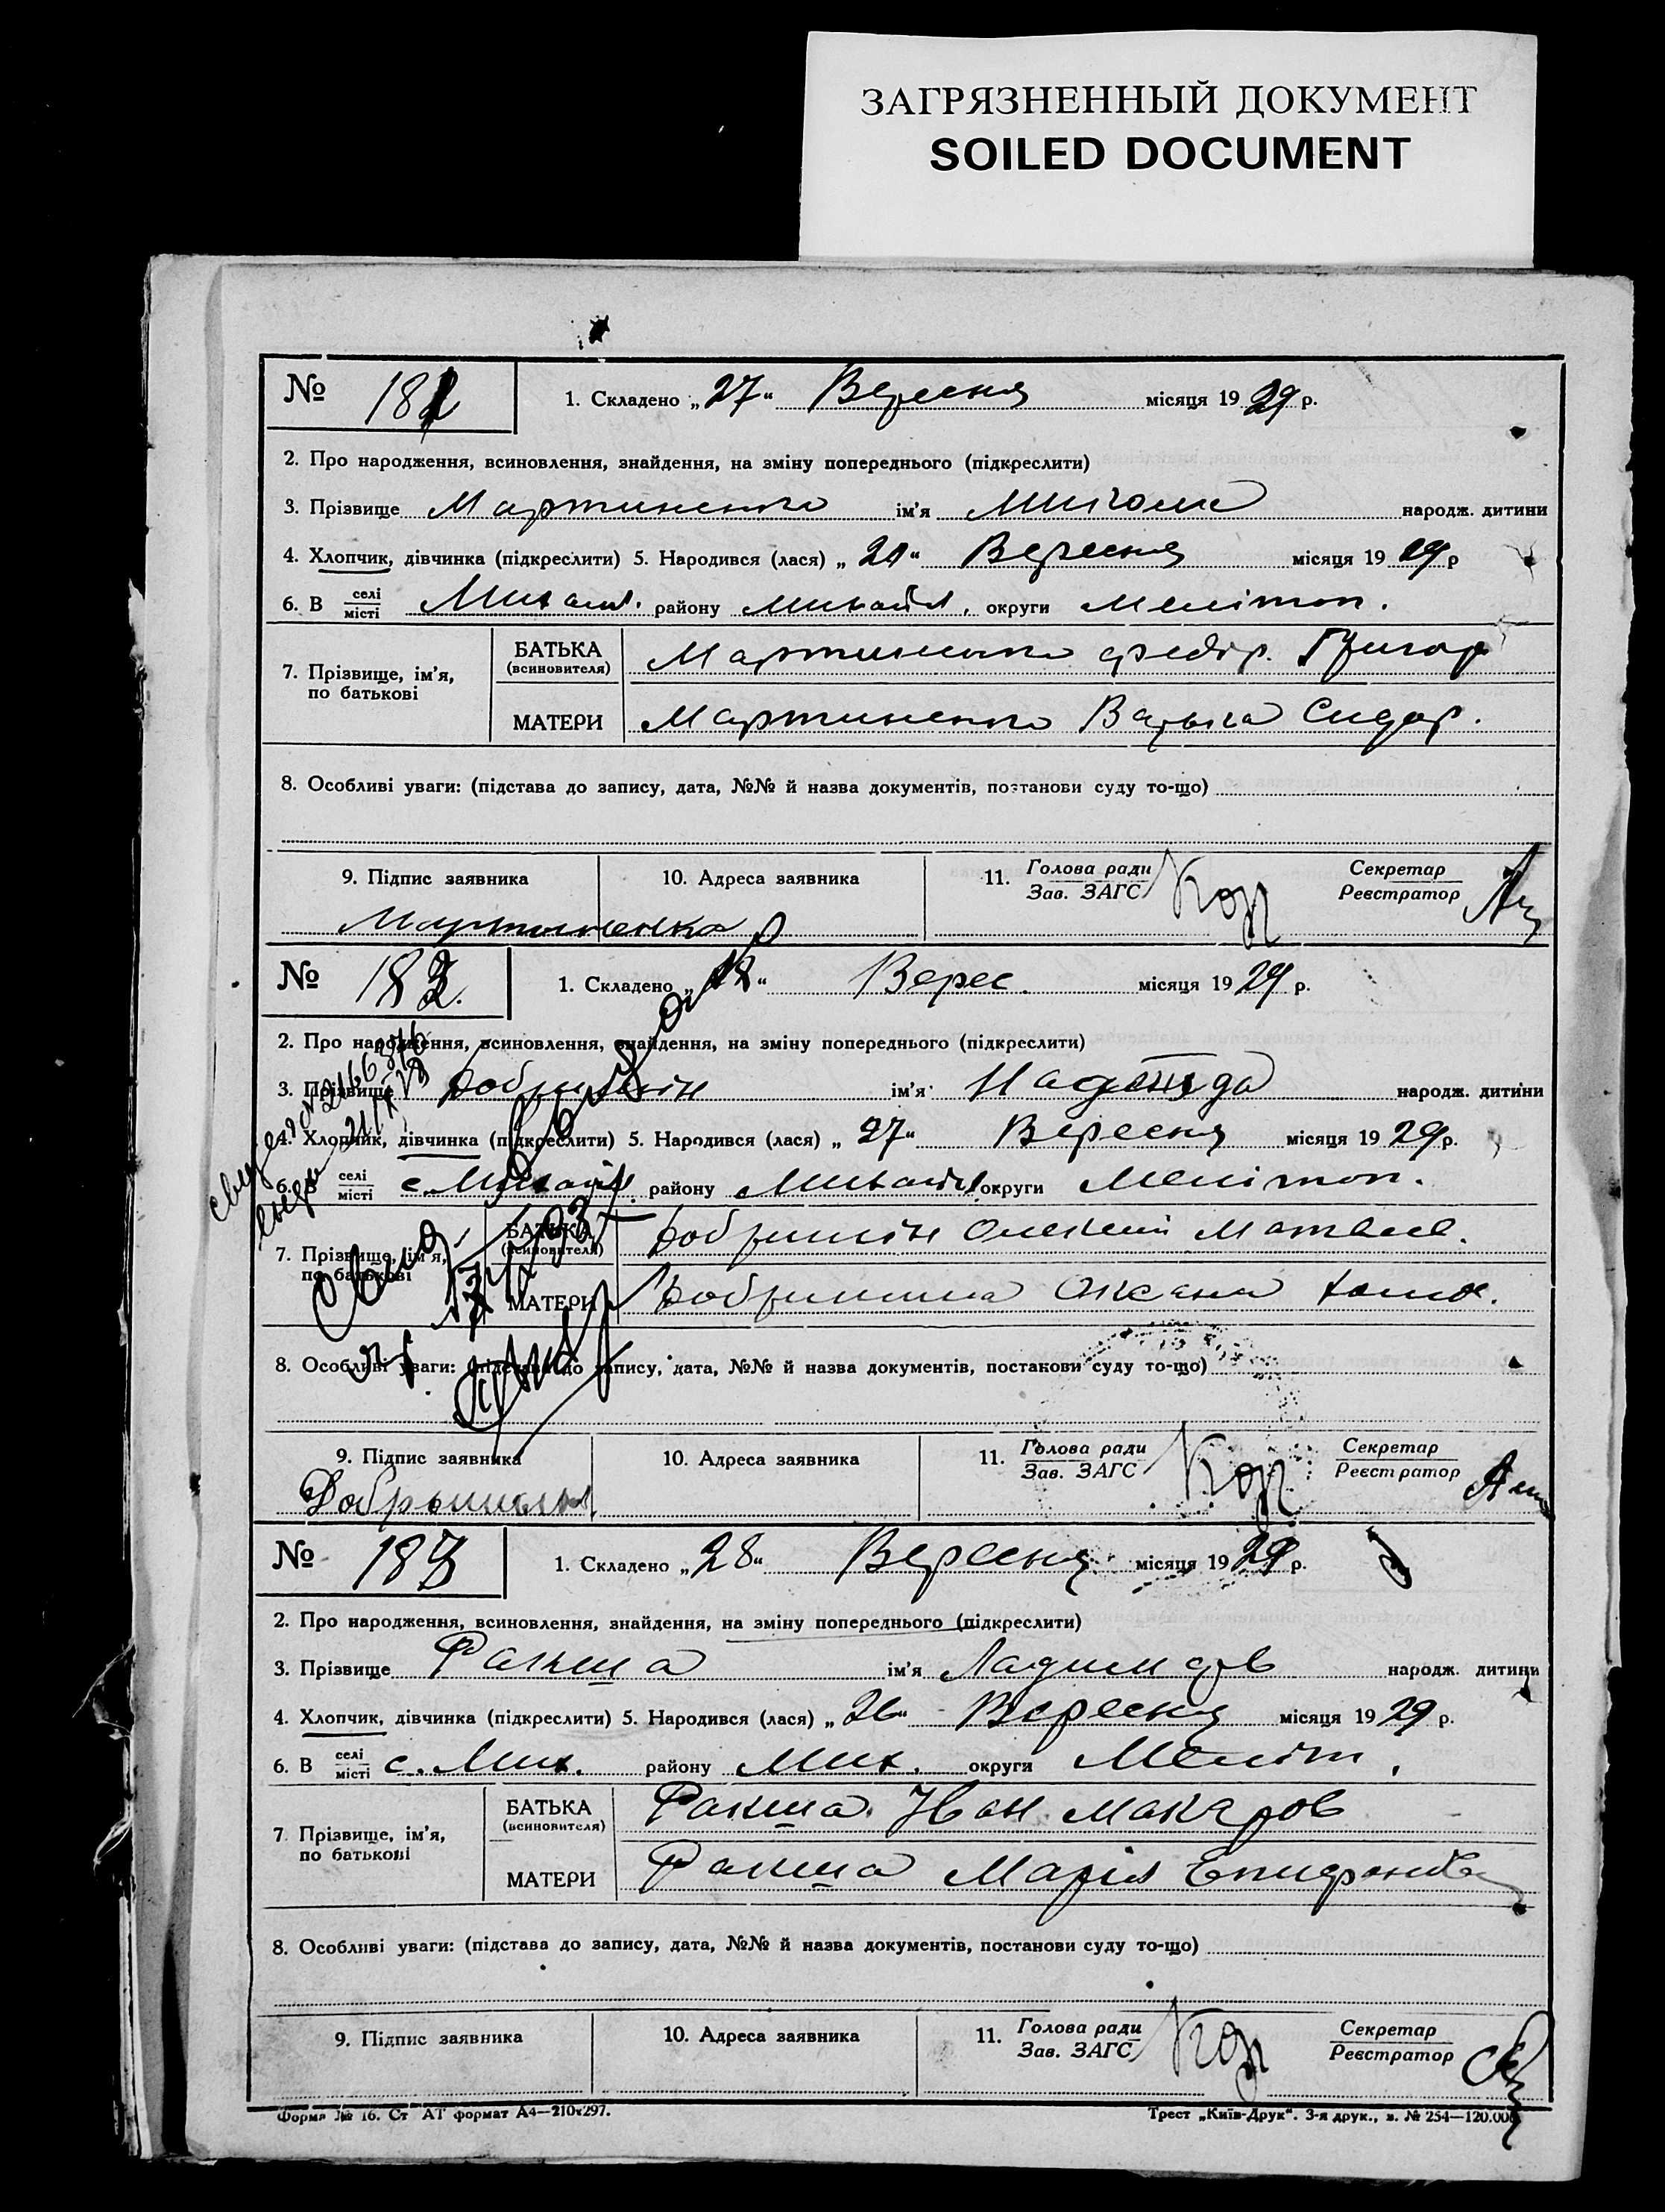 ЗАГРЯЗНЕННЫЙ ДОКУМЕНТ
SOILED DOCUMENT
№ 181 1. Складено „27“ Вересня місяця 1929 р.
2. Про народження, всиновлення, знайдення, на зміну попереднього (підкреслити)
3. Прізвище Мартиненко ім'я Микола народж. дитини
4. Хлопчик, дівчинка (підкреслити) 5. Народився (лася) „ “ Вересня місяця 1929 р
6. В селі місті Михайл. району Михайл. округи Мелітоп.
7. Прізвище, ім'я, по батькові
БАТЬКА (всиновителя) Мартиненко Федір. Григор
МАТЕРИ Мартиненко Варька Сидор.
8. Особливі уваги: (підстава до запису, дата, №№ й назва документів, постанови суду то-що)
9. Підпис заявника 10. Адреса заявника 11. Голова ради Зав. ЗАГС Секретар Реєстратор
Мартиненко
№ 182. 1. Складено „28“ Верес. місяця 1929 р.
2. Про народження, всиновлення, знайдення, на зміну попереднього (підкреслити)
3. Прізвище Добришін ім'я Надежда народж. дитини
4. Хлопчик, дівчинка (підкреслити) 5. Народився (лася) „27“ Вересня місяця 1929 р.
6. В селі місті с. Михайл. району Михайл. округи Мелітоп.
7. Прізвище, ім'я, по батькові
БАТЬКА (всиновителя) Добришін Олексій Матвеев.
МАТЕРИ Добришина Оксана
8. Особливі уваги: (підстава до запису, дата, №№ й назва документів, постанови суду то-що)
9. Підпис заявника 10. Адреса заявника 11. Голова ради Зав. ЗАГС Секретар Реєстратор
№ 183 1. Складено „28“ Вересня місяця 1929 р.
2. Про народження, всиновлення, знайдення, на зміну попереднього (підкреслити)
3. Прізвище Ракша ім'я народж. дитини
4. Хлопчик, дівчинка (підкреслити) 5. Народився (лася) „26“ Вересня місяця 1929 р.
6. В селі місті с. Мих. району Мих. округи Меліт.
7. Прізвище, ім'я, по батькові
БАТЬКА (всиновителя) Ракша Іван Макаров
МАТЕРИ Ракша Марія
8. Особливі уваги: (підстава до запису, дата, №№ й назва документів, постанови суду то-що)
9. Підпис заявника 10. Адреса заявника 11. Голова ради Зав. ЗАГС Секретар Реєстратор
Форма № 16. Ст АТ формат А4—210х297. Трест „Київ-Друк“. 3-я друк., з. № 254—120.000